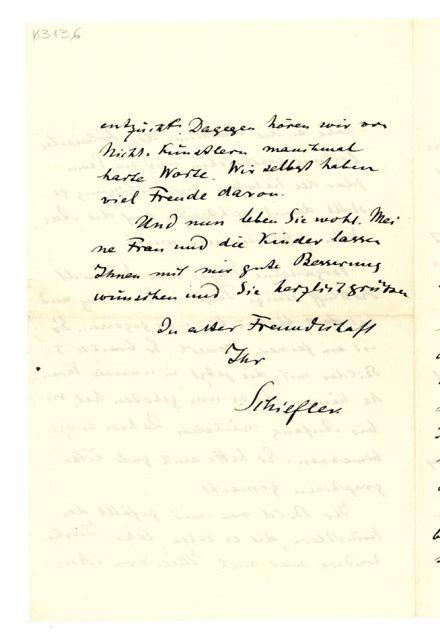 K313,6
entzückt. Dagegen hören wir von
Nicht-Künstlern manchmal
harte Worte. Wir selbst haben
viel Freude davon.
Und nun leben Sie wohl. Mei-
ne Frau und die Kinder lassen
Ihnen mit mir gute Besserung
wünschen und Sie herzlichst grüßen
In alter Freundschaft
Ihr
Schiefler.